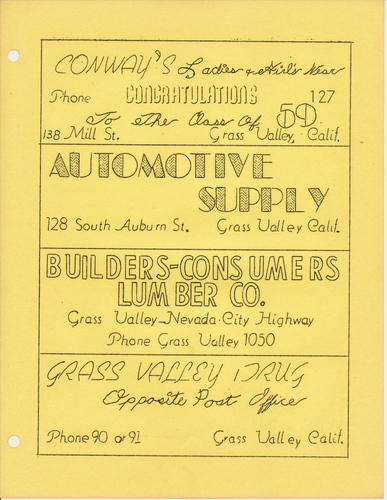 CONWAY'S Ladies & Girl's Wear
Phone CONGRATULATIONS 127
To the Class Of 59
138 Mill St. Grass Valley, Calif.
AUTOMOTIVE
SUPPLY
128 South Auburn St. Grass Valley Calif.
BUILDERS-CONSUMERS
LUMBER CO.
Grass Valley-Nevada City Highway
Phone Grass Valley 1050
GRASS VALLEY DRUG
Opposite Post Office
Phone 90 or 91 Grass Valley Calif.